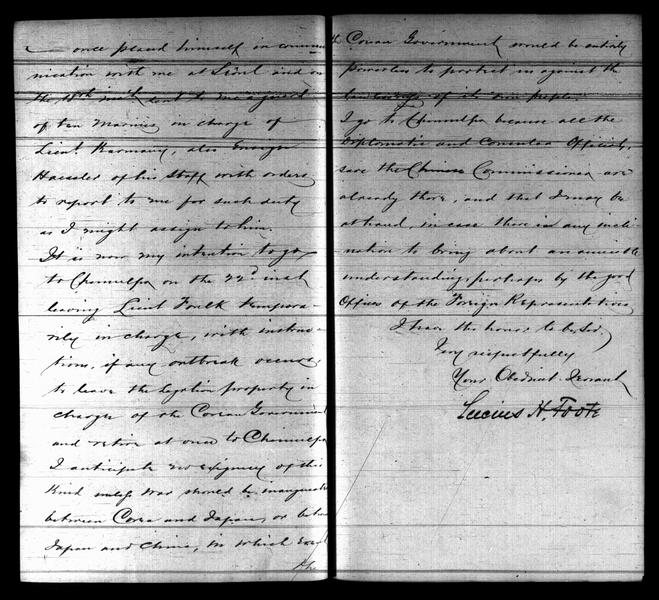 once placed himself in commu-
nication with me at Seoul and on
the inst. sent to me a guard
of ten Marines in charge of
Lieut. Harmany, also Ensign
Haesler of his Staff with orders
to report to me for such duty
as I might assign to him.
It is now my intention to go
to Chemulpo on the 22d inst.
leaving Lieut Foulk tempora-
rily in charge, with instruc-
tions, if any outbreak occurs,
to leave the legation property in
charge of the Corean Government
and retire at once to Chemulpo
I anticipate no exigency of this
kind unless war should be inaugurated
between Corea and Japan, or between
Japan and China, in which event
the
the Corean Government would be entirely
powerless to protect us against the
of its own people.
I go to Chemulpo because all the
Diplomatic and Consular Officials,
save the Chinese Commissioner are
already there, and that I may be
at hand, in case there is any incli-
nation to bring about an amicable
understanding, perhaps by the good
Offices of the Foreign Representatives
I have the honor to be, Sir,
Very respectfully
Your Obedient Servant
Lucius H. Foote